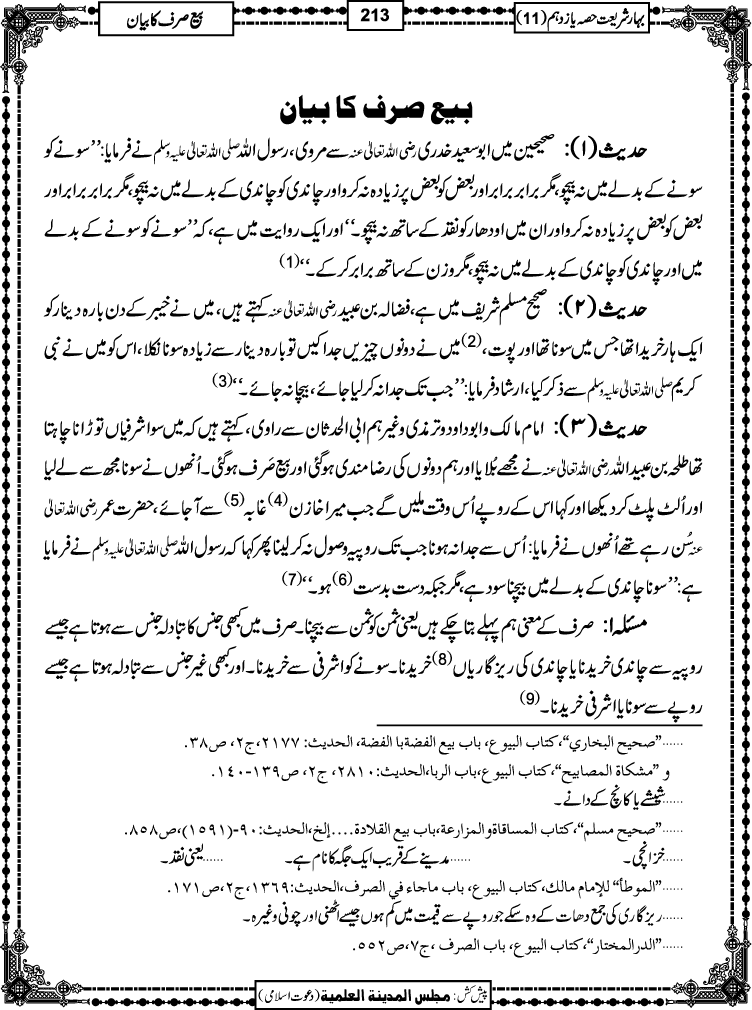 بہار شریعت حصہ یازدہم (11)
213
بیع صرف کا بیان
بیع صرف کا بیان
حدیث (۱): صحیحین میں ابو سعید خدری رضی اللہ تعالیٰ عنہ سے مروی، رسول اللہ صلی اللہ تعالیٰ علیہ وسلم نے فرمایا: ’’سونے کو
سونے کے بدلے میں نہ بیچو، مگر برابر برابر اور بعض کو بعض پر زیادہ نہ کرو اور چاندی کو چاندی کے بدلے میں نہ بیچو، مگر برابر برابر اور
بعض کو بعض پر زیادہ نہ کرو اور ان میں اودھار کو نقد کے ساتھ نہ بیچو۔‘‘ اور ایک روایت میں ہے، کہ ’’سونے کو سونے کے بدلے
میں اور چاندی کو چاندی کے بدلے میں نہ بیچو، مگر وزن کے ساتھ برابر کرکے۔‘‘(1)
حدیث (۲): صحیح مسلم شریف میں ہے، فضالہ بن عبید رضی اللہ تعالیٰ عنہ کہتے ہیں، میں نے خیبر کے دن بارہ دینار کو
ایک ہار خریدا تھا جس میں سونا تھا اور پوت، (2) میں نے دونوں چیزیں جدا کیں تو بارہ دینار سے زیادہ سونا نکلا، اس کو میں نے نبی
کریم صلی اللہ تعالیٰ علیہ وسلم سے ذکر کیا، ارشاد فرمایا: ’’جب تک جدا نہ کرلیا جائے، بیچا نہ جائے۔‘‘(3)
حدیث (۳): امام مالک و ابو داود و ترمذی وغیرہم ابی الحدثان سے راوی، کہتے ہیں کہ میں سو اشرفیاں توڑانا چاہتا
تھا طلحہ بن عبید اللہ رضی اللہ تعالیٰ عنہ نے مجھے بُلایا اور ہم دونوں کی رضا مندی ہوگئی اور بیع صَرف ہوگئی۔ اُنھوں نے سونا مجھ سے لے لیا
اور اُلٹ پلٹ کر دیکھا اور کہا اس کے روپے اُس وقت ملیں گے جب میرا خازن (4) غابہ (5) سے آجائے، حضرت عمر رضی اللہ تعالیٰ
عنہ سُن رہے تھے اُنھوں نے فرمایا: اُس سے جدا نہ ہونا جب تک روپیہ وصول نہ کرلینا پھر کہا کہ رسول اللہ صلی اللہ تعالیٰ علیہ وسلم نے فرمایا
ہے: ’’سونا چاندی کے بدلے میں بیچنا سود ہے، مگر جبکہ دست بدست (6) ہو۔‘‘(7)
مسئلہ ۱: صرف کے معنی ہم پہلے بتا چکے ہیں یعنی ثمن کو ثمن سے بیچنا۔ صرف میں کبھی جنس کا تبادلہ جنس سے ہوتا ہے جیسے
روپیہ سے چاندی خریدنا یا چاندی کی ریزگاریاں (8) خریدنا۔ سونے کو اشرفی سے خریدنا۔ اور کبھی غیر جنس سے تبادلہ ہوتا ہے جیسے
روپے سے سونا یا اشرفی خریدنا۔ (9)
......"صحیح البخاري"، کتاب البیوع، باب بیع الفضة با الفضة، الحدیث: ٢١٧٧، ج٢، ص٣٨.
و "مشکاة المصابیح"، کتاب البیوع، باب الربا، الحدیث: ٢٨١٠، ج٢، ص١٣٩-١٤٠.
......شیشے یا کانچ کے دانے۔
......"صحیح مسلم"، کتاب المساقاة والمزارعة، باب بیع القلادة....إلخ، الحدیث: ٩٠-(١٥٩١)، ص٨٥٨.
......خزانچی۔ ......مدینے کے قریب ایک جگہ کا نام ہے۔ ......یعنی نقد۔
......"الموطأ" للإمام مالك، کتاب البیوع، باب ماجاء في الصرف، الحدیث: ١٣٦٩، ج٢، ص١٧١.
......ریزگاری کی جمع دھات کے وہ سکے جو روپے سے قیمت میں کم ہوں جیسے اٹھنی اور چونی وغیرہ۔
......"الدرالمختار"، کتاب البیوع، باب الصرف، ج٧، ص٥٥٢.
پیش کش: مجلس المدینة العلمیة (دعوت اسلامی)